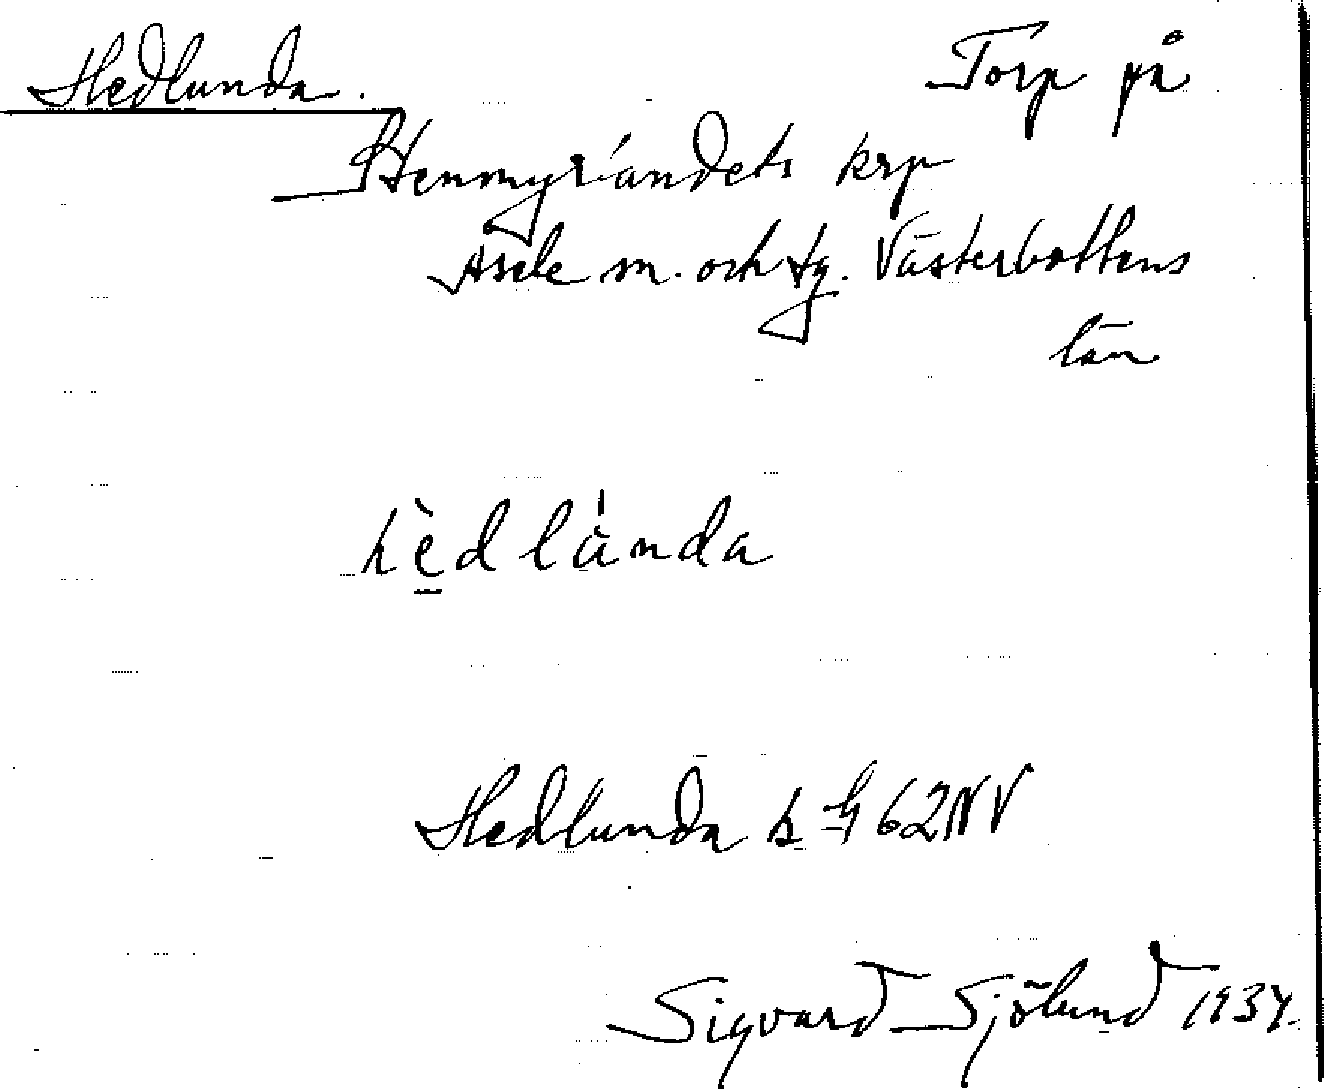 Hedlunda.
Torp på
Stenmyrlandets krp
Åsele sn. och tg. Västerbottens
län
hedlunda
Hedlunda 62NV
Sigvard Sjölund 1937.